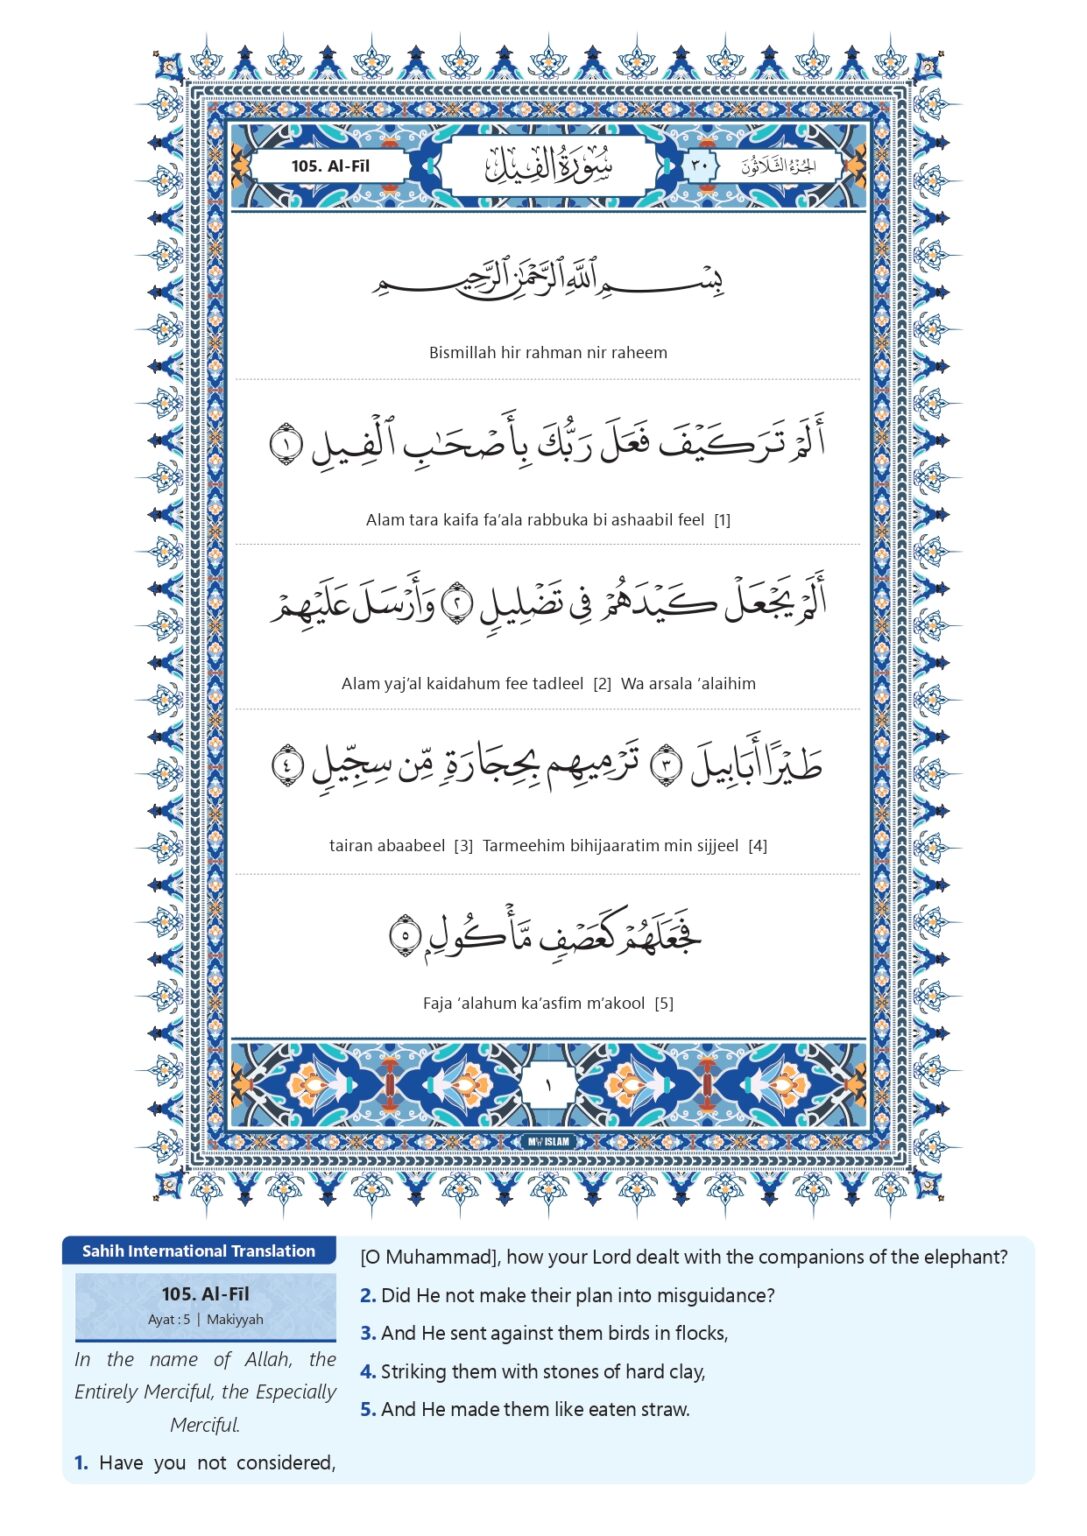 105. Al-Fīl
سُورَةُ الفِيلِ
٣٠
الجُزءُ الثَّلَاثُونَ
بِسْمِ ٱللَّهِ ٱلرَّحْمَٰنِ ٱلرَّحِيمِ
Bismillah hir rahman nir raheem
أَلَمْ تَرَ كَيْفَ فَعَلَ رَبُّكَ بِأَصْحَٰبِ ٱلْفِيلِ ١
Alam tara kaifa fa’ala rabbuka bi ashaabil feel [1]
أَلَمْ يَجْعَلْ كَيْدَهُمْ فِى تَضْلِيلٍ ٢ وَأَرْسَلَ عَلَيْهِمْ
Alam yaj’al kaidahum fee tadleel [2] Wa arsala ‘alaihim
طَيْرًا أَبَابِيلَ ٣ تَرْمِيهِم بِحِجَارَةٍ مِّن سِجِّيلٍ ٤
tairan abaabeel [3] Tarmeehim bihijaaratim min sijjeel [4]
فَجَعَلَهُمْ كَعَصْفٍ مَّأْكُولٍۭ ٥
Faja ‘alahum ka’asfim m’akool [5]
١
MY ISLAM
Sahih International Translation
105. Al-Fīl
Ayat : 5 | Makiyyah
In the name of Allah, the
Entirely Merciful, the Especially
Merciful.
1. Have you not considered,
[O Muhammad], how your Lord dealt with the companions of the elephant?
2. Did He not make their plan into misguidance?
3. And He sent against them birds in flocks,
4. Striking them with stones of hard clay,
5. And He made them like eaten straw.